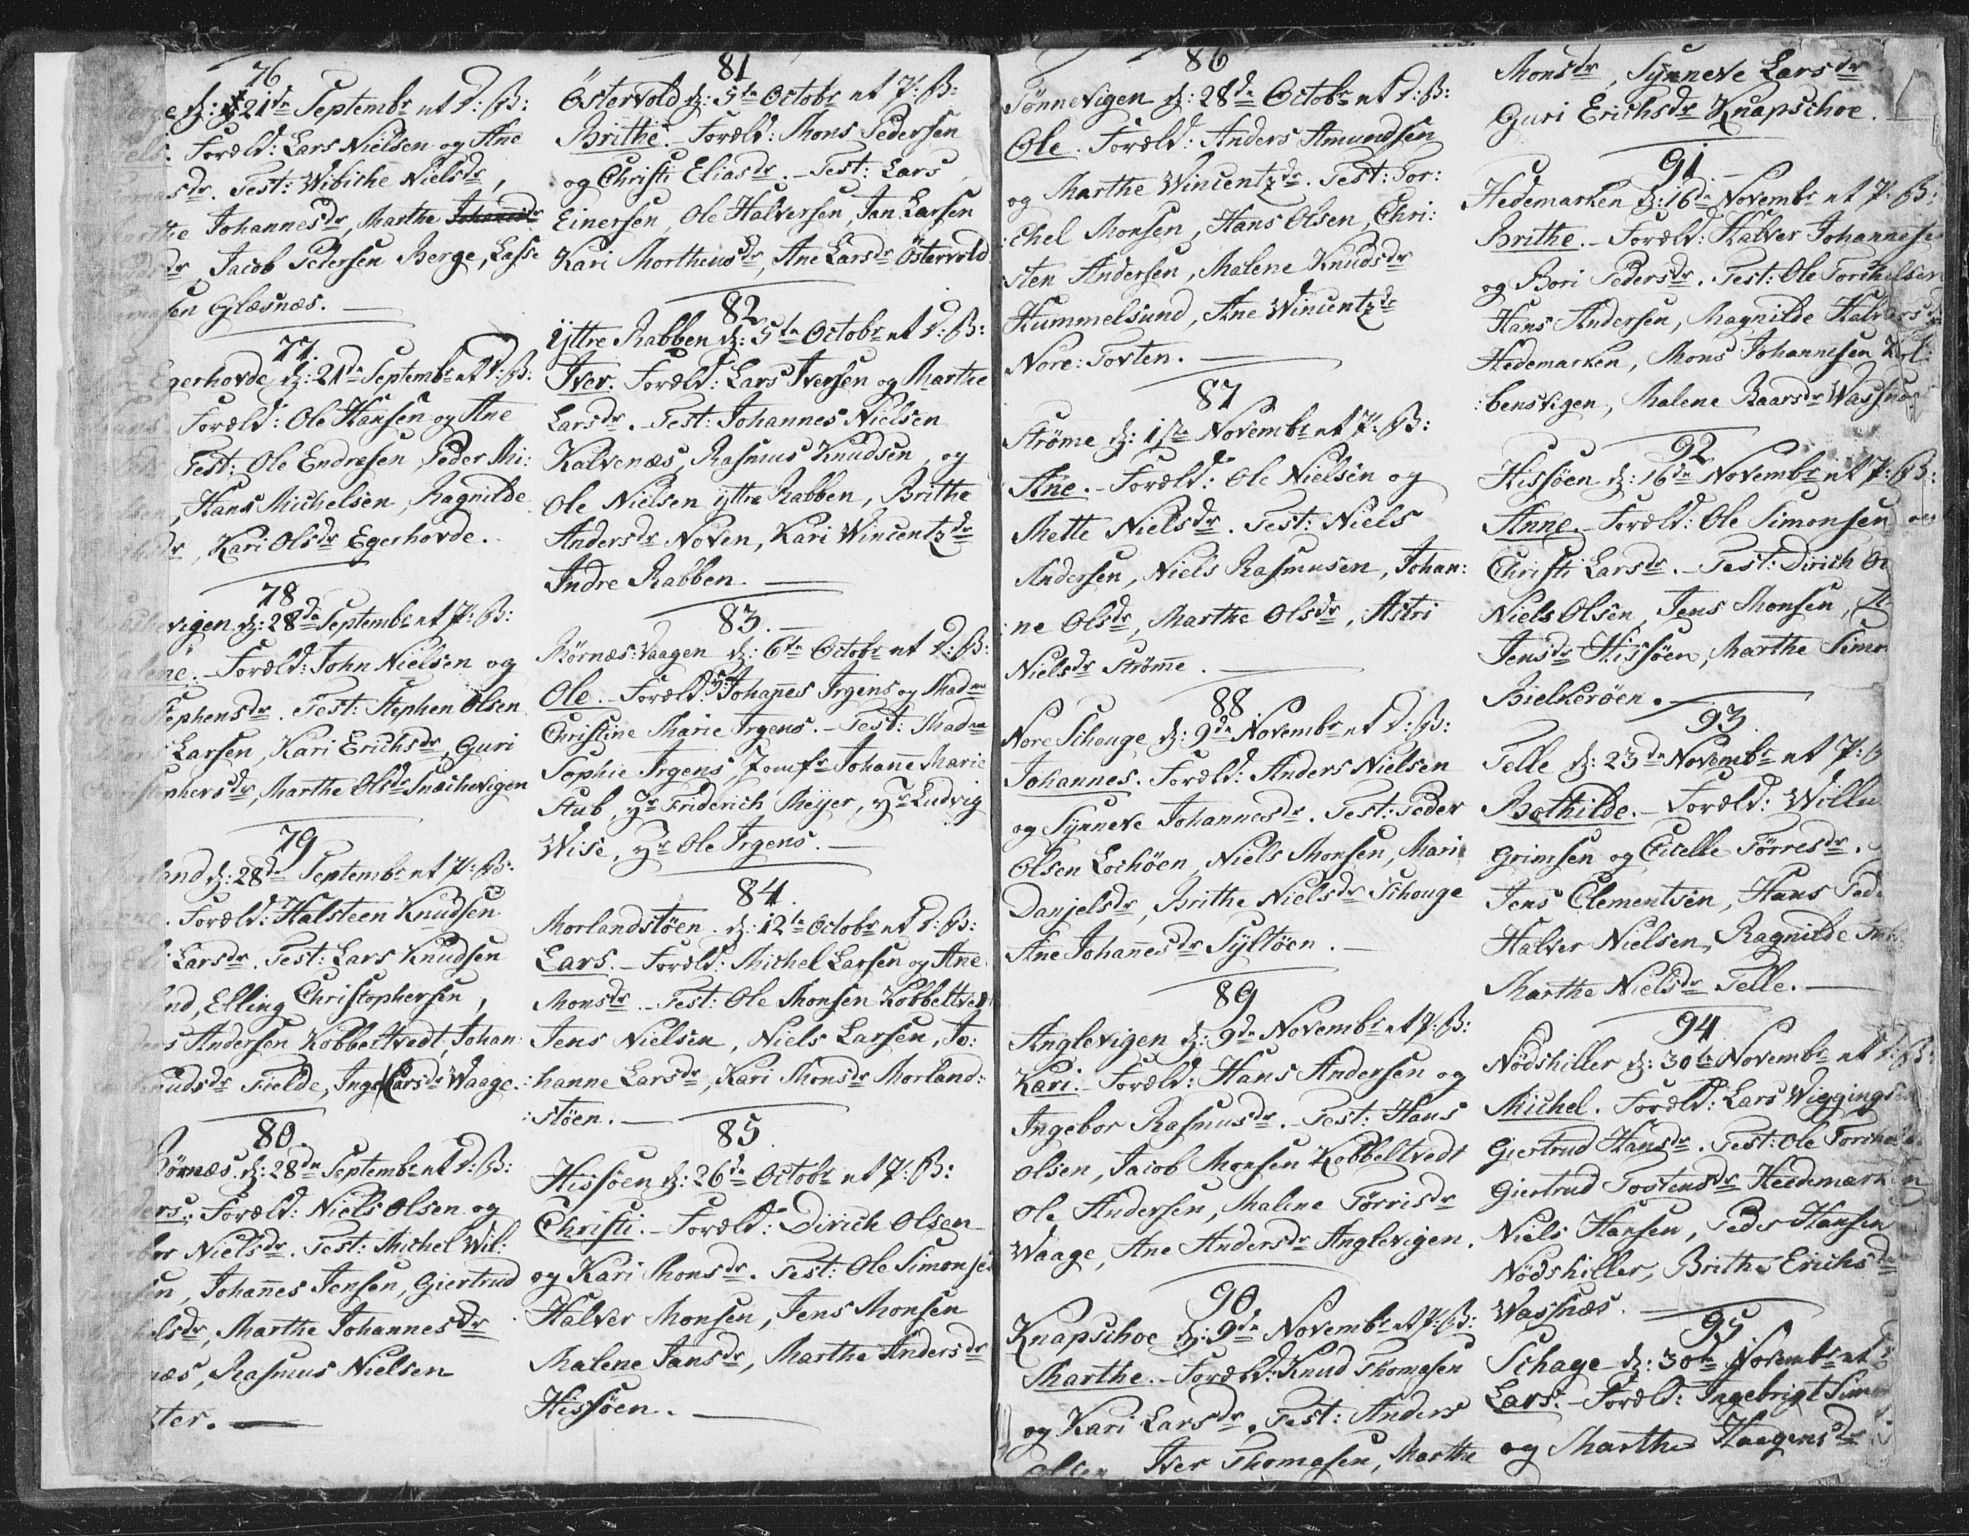 76
d: 21de Septembr nt D: B:
Foræld: Lars Nielsen og Ane
Test: Wibiche Nielsdr,
Johannesdr, Marthe
Jacob Pedersen Berge, Lasse
sen Glæsnæs.
77.
Egerhovde d: 21de Septembr nt D: B:
Foræld: Ole Hansen og Ane
Test: Ole Endresen, Peder Mi:
Hans Michelsen, Ragnilde
Kari Olsdr Egerhovde.
78
vigen d: 28de Septembr nt D: B:
Foræld: John Nielsen og
Stephensdr. Test: Stephen Olsen
Larsen, Kari Erichsdr, Guri
Christophersdr, Marthe Olsdr Snæchevigen
79
land d: 28de Septembr nt D: B:
Foræld: Halsteen Knudsen
Larsdr. Test: Lars Knudsen
Elling Christophersen,
Andersen Kobbeltvedt, Johan:
Knudsdr Fielde, Inge Larsdr Waage.
80.
Börnæs. d: 28de Septembr nt D: B:
Foræld: Niels Olsen og
Nielsdr. Test: Michel Wil:
Johanes Jensen, Giertrud
Marthe Johannesdr
næs, Rasmus Nielsen
ter.
81
Östervold d: 5te Octobr nt D: B:
Brithe. Foræld: Mons Pedersen
og Christi Eliasdr. - Test: Lars
Einersen, Ole Halversen, Jan Larsen
Kari Morthensdr, Ane Larsdr Östervold
82
Yttre Rabben d: 5te Octobr nt D: B:
Iver. Foræld: Lars Iversen og Marthe
Larsdr. - Test: Johannes Nielsen
Kalvenæs, Rasmus Knudsen, og
Ole Nielsen yttre Rabben, Brithe
Andersdr Noven, Kari Wincentzdr
Indre Rabben.
83.
Börnæs: Vaagen d: 6te Octobr nt D: B:
Ole. - Foræld: Sr Johañes Irgens og Madme
Christine Marie Irgens. - Test: Madme
Sophie Irgens, Jomfr Johañe Marie
Stub, Hr Friderich Meÿer, Hr Ludvig
Wise, Hr Ole Irgens.
84.
Morlandstöen. d: 12te Octobr nt D: B:
Lars. - Foræld: Michel Larsen og Ane
Monsdr. - Test: Ole Monsen Kobbeltvedt
Jens Nielsen, Niels Larsen, Jo:
:hanne Larsdr, Kari Monsdr Morland:
:stöen.
85.
Hissöen d: 26de Octobr nt D: B:
Christi. - Foræld: Dirich Olsen
og Kari Monsdr. Test: Ole Simonsen
Halver Monsen, Jens Monsen
Malene Jansdr, Marthe Andersdr
Hissöen.
86
Tönnevigen d: 28de Octobr nt D: B:
Ole. Foræld: Anders Amundsen
og Marthe Wincentzdr. Test: Tor:
:chel Monsen, Hans Olsen, Chri:
:sten Andersen, Malene Knudsdr
Hummelsund, Ane Wincentzdr
Nore: Toften.
87
Ströme d: 1ste Novembr nt D: B:
Ane. - Foræld: Ole Nielsen og
Mette Nielsdr. Test: Niels
Andersen, Niels Rasmusen, Johan:
:ne Olsdr, Marthe Olsdr, Astri
Nielsdr Ströme.
88
Nore Schouge d: 9de Novembr nt D: B:
Johannes. Foræld: Anders Nielsen
og Synneve Johannesdr. Test: Peder
Olsen Lochöen, Niels Monsen, Mari
Danjelsdr, Brithe Nielsdr Schouge
Ane Johañesdr Syltöen.
89
Anglevigen d: 9de Novembr nt D: B:
Kari. - Foræld: Hans Andersen og
Ingebor Rasmusdr. - Test: Hans
Olsen, Jacob Monsen Kobbeltvedt
Ole Andersen, Malene Törrisdr
Waage, Ane Andersdr Anglevigen.
90
Knapschoe d: 9de Novembr nt D: B:
Marthe. - Foræld: Knud Thomasen
og Kari Larsdr. Test: Anders
Olsen Iver Thomasen, Marthe
Monsdr, Synneve Larsdr
Guri Erichsdr Knapschoe.
91.
Hedemarken d: 16de Novembr nt D: B:
Brithe. - Foræld: Halver Johannesen
og Bori Pedersdr. Test: Ole Torchelsen
Hans Andersen, Magnilde Halversdr
Hedemarken, Mons Johannesen Kol:
:bensvigen, Malene Baarsdr Wassnæs
92
Hissöen d: 16de Novembr nt D: B:
Anne. - Foræld: Ole Simonsen og
Christi Larsdr. - Test: Dirich
Niels Olsen, Jens Monsen,
Jensdr Hissöen, Marthe
Bielkeröen.
93.
Telle d: 23de Novembr nt D:
Bothilde. - Foræld:
Grimsen og Citelle Törresdr.
Jens Clementsen, Hans
Halver Nielsen, Ragnilde
Marthe Nielsdr Telle.
94
Nödshiller d: 30te Novembr nt D: B:
Michel. Foræld: Lars Wiggingsen
Giertrud Hansdr. Test: Ole
Giertrud Tostensdr Hedemarken
Niels Hansen, Peder Hansen
Nödshiller, Brithe Erichsdr
Wassnæs.
95
Schage d: 30te Novembr nt
Lars. - Foræld: Ingebrigt
og Marthe Haagensdr